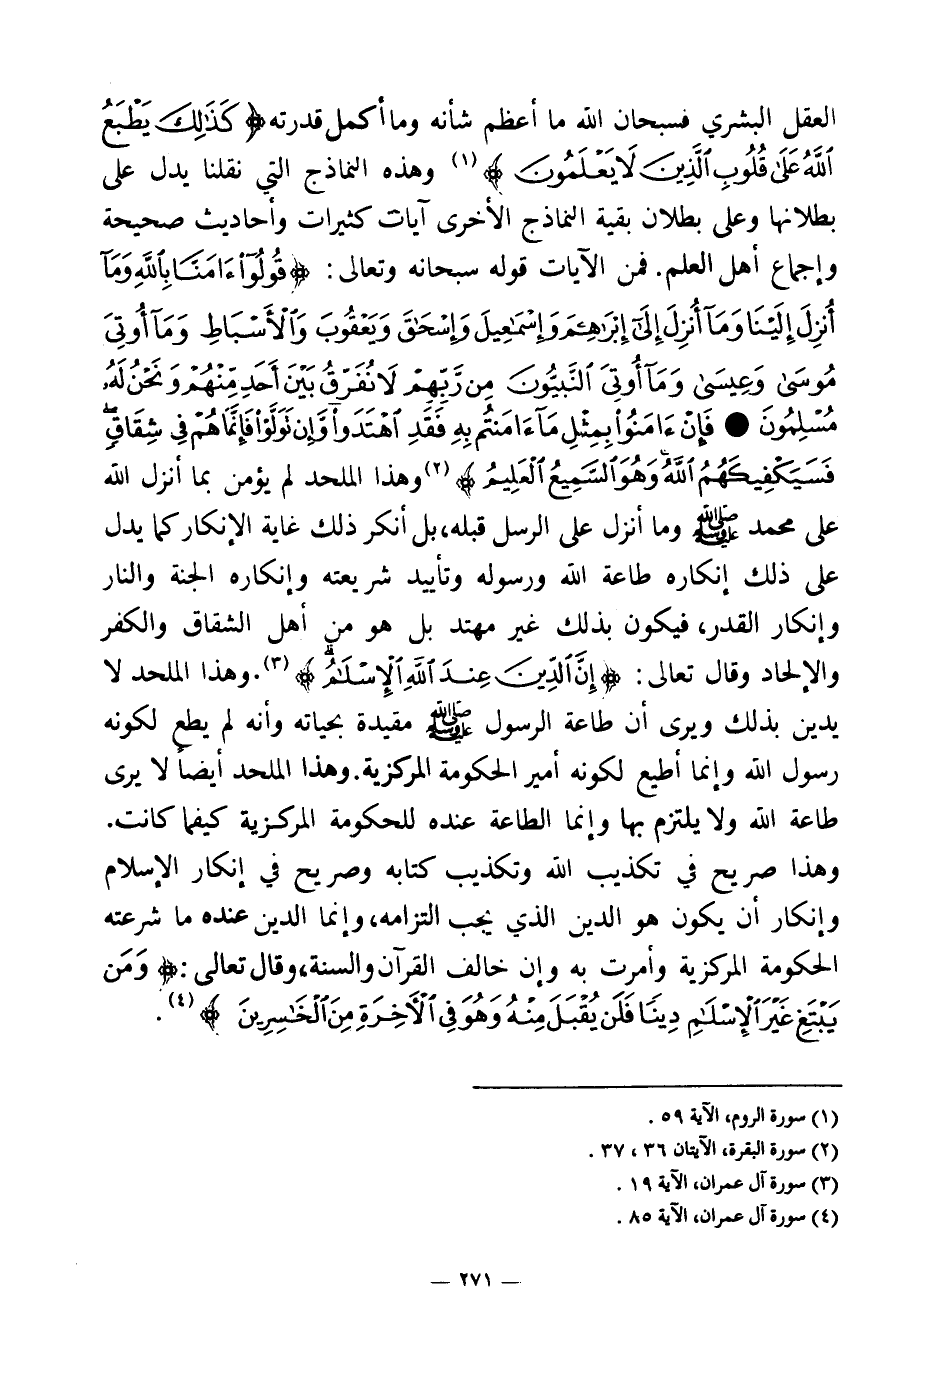 العقل البشري فسبحان الله ما أعظم شأنه وما أكمل قدرته ﴿ كَذَٰلِكَ يَطْبَعُ
ٱللَّهُ عَلَىٰ قُلُوبِ ٱلَّذِينَ لَا يَعْلَمُونَ ﴾ (١) وهذه النماذج التي نقلنا يدل على
بطلانها وعلى بطلان بقية النماذج الأخرى آيات كثيرات وأحاديث صحيحة
وإجماع أهل العلم. فمن الآيات قوله سبحانه وتعالى: ﴿ قُولُوٓا۟ ءَامَنَّا بِٱللَّهِ وَمَآ
أُنزِلَ إِلَيْنَا وَمَآ أُنزِلَ إِلَىٰٓ إِبْرَٰهِـۧمَ وَإِسْمَٰعِيلَ وَإِسْحَٰقَ وَيَعْقُوبَ وَٱلْأَسْبَاطِ وَمَآ أُوتِىَ
مُوسَىٰ وَعِيسَىٰ وَمَآ أُوتِىَ ٱلنَّبِيُّونَ مِن رَّبِّهِمْ لَا نُفَرِّقُ بَيْنَ أَحَدٍ مِّنْهُمْ وَنَحْنُ لَهُۥ
مُسْلِمُونَ ● فَإِنْ ءَامَنُوا۟ بِمِثْلِ مَآ ءَامَنتُم بِهِۦ فَقَدِ ٱهْتَدَوا۟ وَّإِن تَوَلَّوْا۟ فَإِنَّمَا هُمْ فِى شِقَاقٍۖ
فَسَيَكْفِيكَهُمُ ٱللَّهُ وَهُوَ ٱلسَّمِيعُ ٱلْعَلِيمُ ﴾ (٢) وهذا الملحد لم يؤمن بما أنزل الله
على محمد ﷺ وما أنزل على الرسل قبله، بل أنكر ذلك غاية الإنكار كما يدل
على ذلك إنكاره طاعة الله ورسوله وتأييد شريعته وإنكاره الجنة والنار
وإنكار القدر، فيكون بذلك غير مهتد بل هو من أهل الشقاق والكفر
والإلحاد وقال تعالى: ﴿ إِنَّ ٱلدِّينَ عِندَ ٱللَّهِ ٱلْإِسْلَٰمُۗ ﴾ (٣). وهذا الملحد لا
يدين بذلك ويرى أن طاعة الرسول ﷺ مقيدة بحياته وأنه لم يطع لكونه
رسول الله وإنما أطيع لكونه أمير الحكومة المركزية. وهذا الملحد أيضاً لا يرى
طاعة الله ولا يلتزم بها وإنما الطاعة عنده للحكومة المركزية كيفما كانت.
وهذا صريح في تكذيب الله وتكذيب كتابه وصريح في إنكار الإسلام
وإنكار أن يكون هو الدين الذي يجب التزامه، وإنما الدين عنده ما شرعته
الحكومة المركزية وأمرت به وإن خالف القرآن والسنة، وقال تعالى: ﴿ وَمَن
يَبْتَغِ غَيْرَ ٱلْإِسْلَٰمِ دِينًا فَلَن يُقْبَلَ مِنْهُ وَهُوَ فِى ٱلْأَخِرَةِ مِنَ ٱلْخَٰسِرِينَ ﴾ (٤).
(١) سورة الروم، الآية ٥٩ .
(٢) سورة البقرة، الآيتان ٣٦ ، ٣٧ .
(٣) سورة آل عمران، الآية ١٩ .
(٤) سورة آل عمران، الآية ٨٥ .
— ٢٧١ —